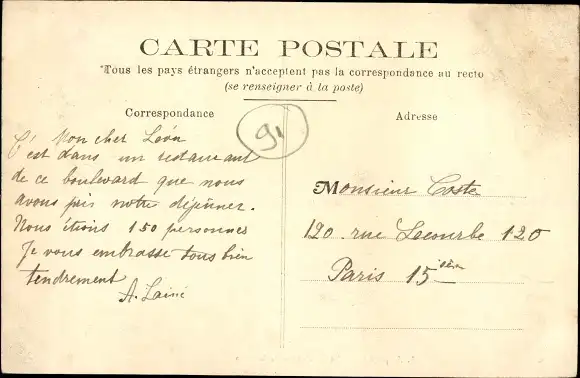 CARTE POSTALE
Tous les pays étrangers n'acceptent pas la correspondance au recto
(se renseigner à la poste)
Correspondance
91
Mon cher Léon
C'est dans un restaurant
de ce boulevard que nous
avons pris notre déjeuner.
Nous étions 150 personnes
Je vous embrasse tous bien
tendrement
A. Lainé
Adresse
Monsieur Coste
120 rue Lecourbe 120
Paris 15ième